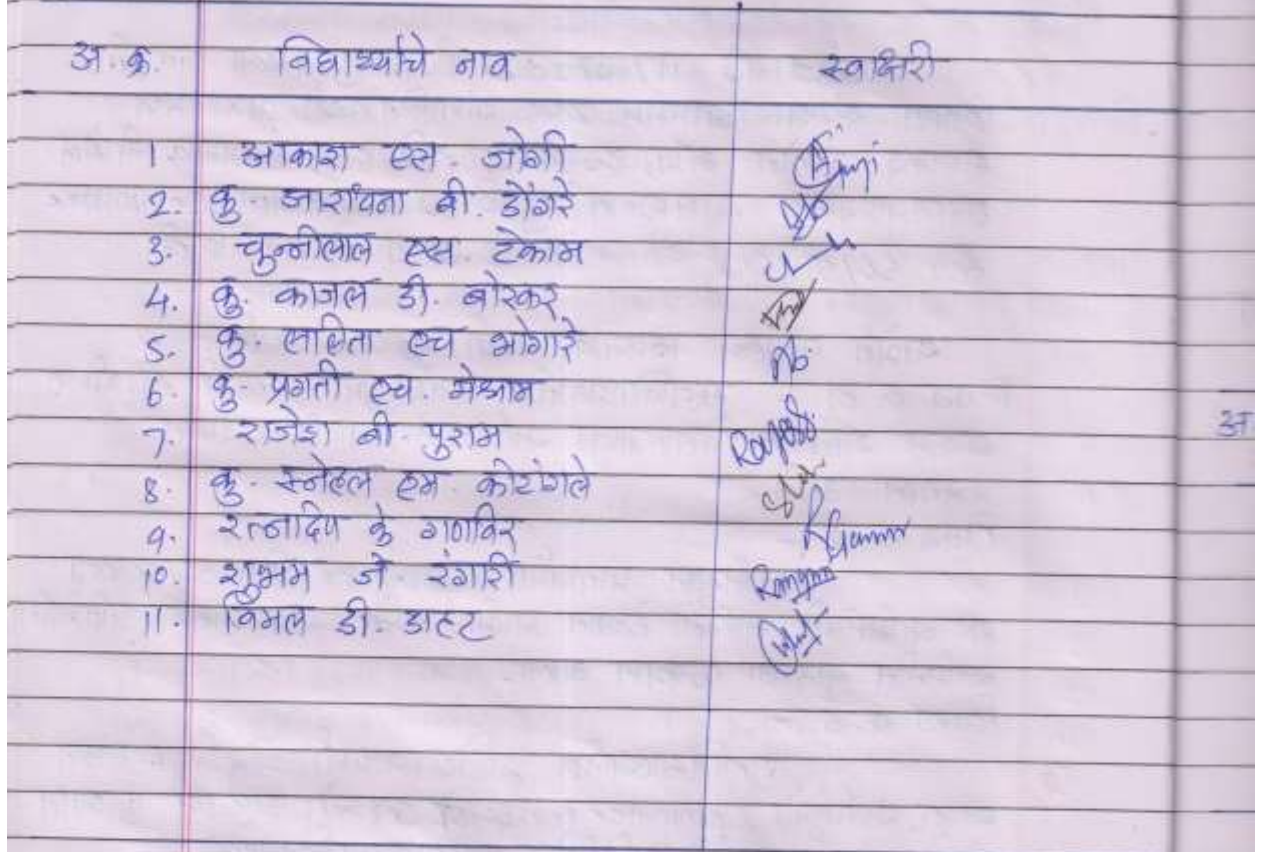 अ. क्र. विद्यार्थ्याचे नाव स्वाक्षरी
1. आकाश एस. जोगी
2. कु आराधना बी. डोंगरे
3. चुन्नीलाल एस. टेकाम
4. कु. काजल डी. बोरकर
5. कु. ललिता एच भोगारे
6. कु प्रगती एच. मेश्राम
7. राजेश बी. पुराम Rajesh
8. कु. स्नेहल एम. कोटांगले
9. रत्नादिप के गणविर
10. शुभम जे. रंगारी
11. विमल डी. डाहट
अ.